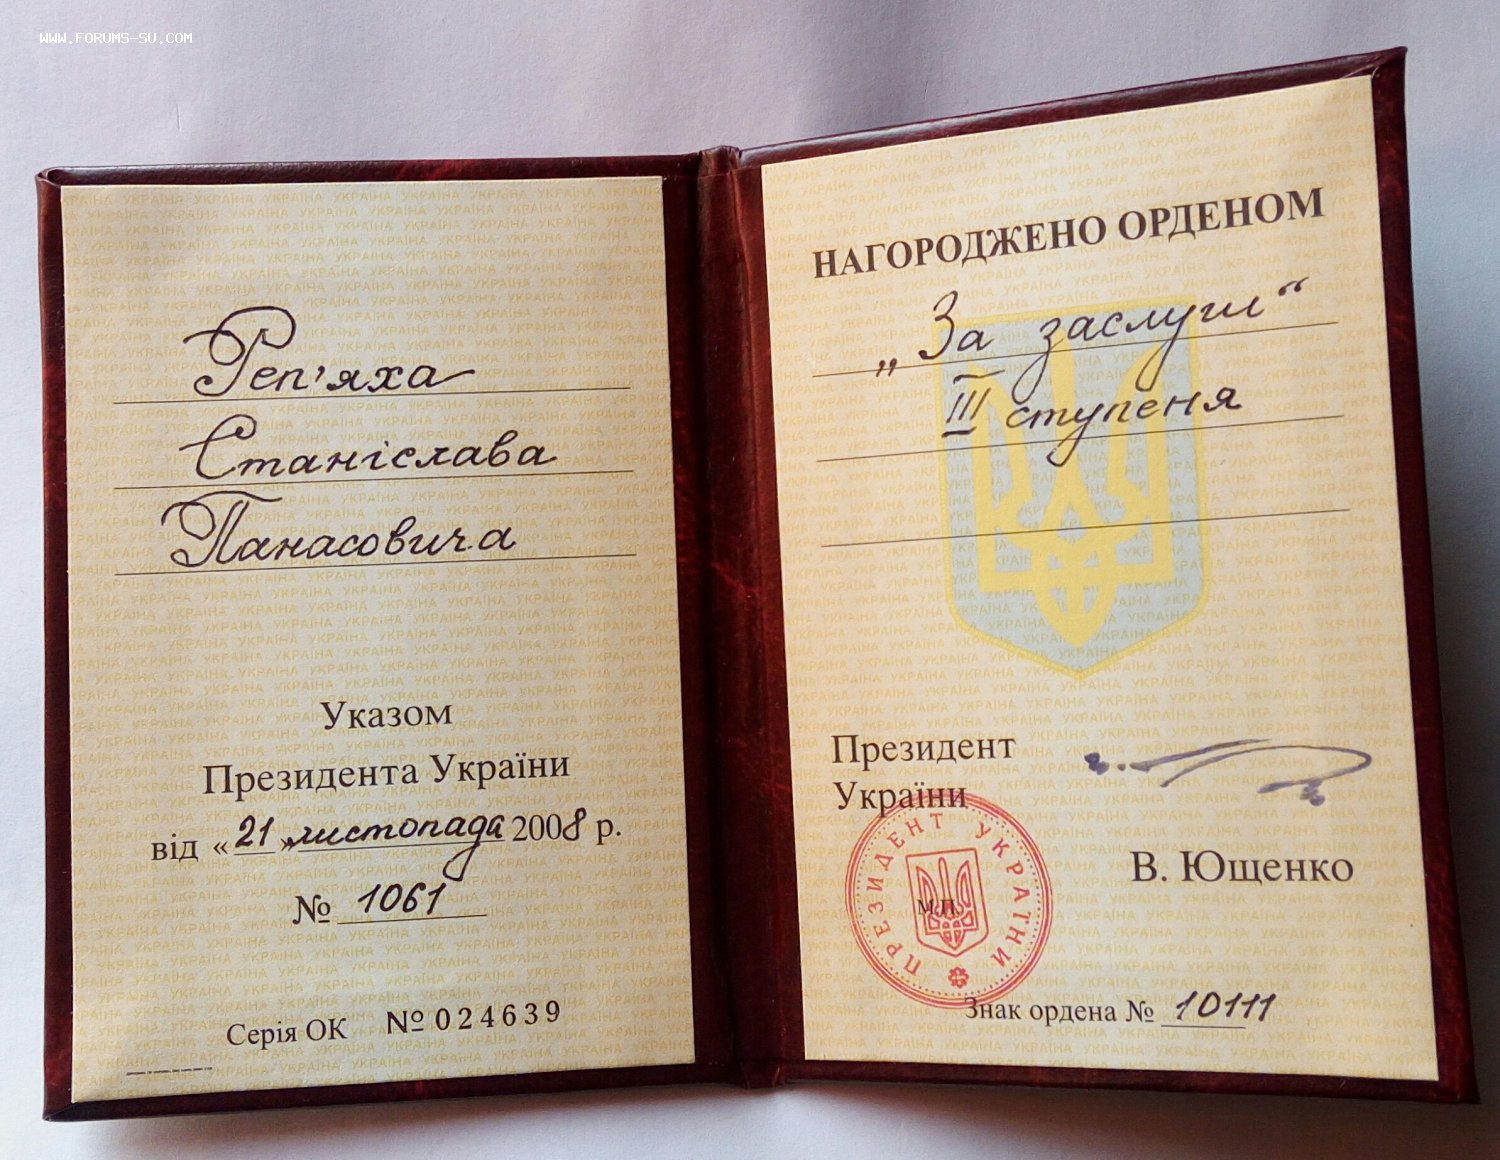 WWW.FORUMS-SU.COM
Реп'яха
Станіслава
Панасовича
Указом
Президента України
від «21» листопада 2008 р.
№ 1061
Серія ОК №024639
НАГОРОДЖЕНО ОРДЕНОМ
„За заслуги“
III ступеня
Президент
України
В. Ющенко
ПРЕЗИДЕНТ УКРАЇНИ
М.П.
Знак ордена № 10111